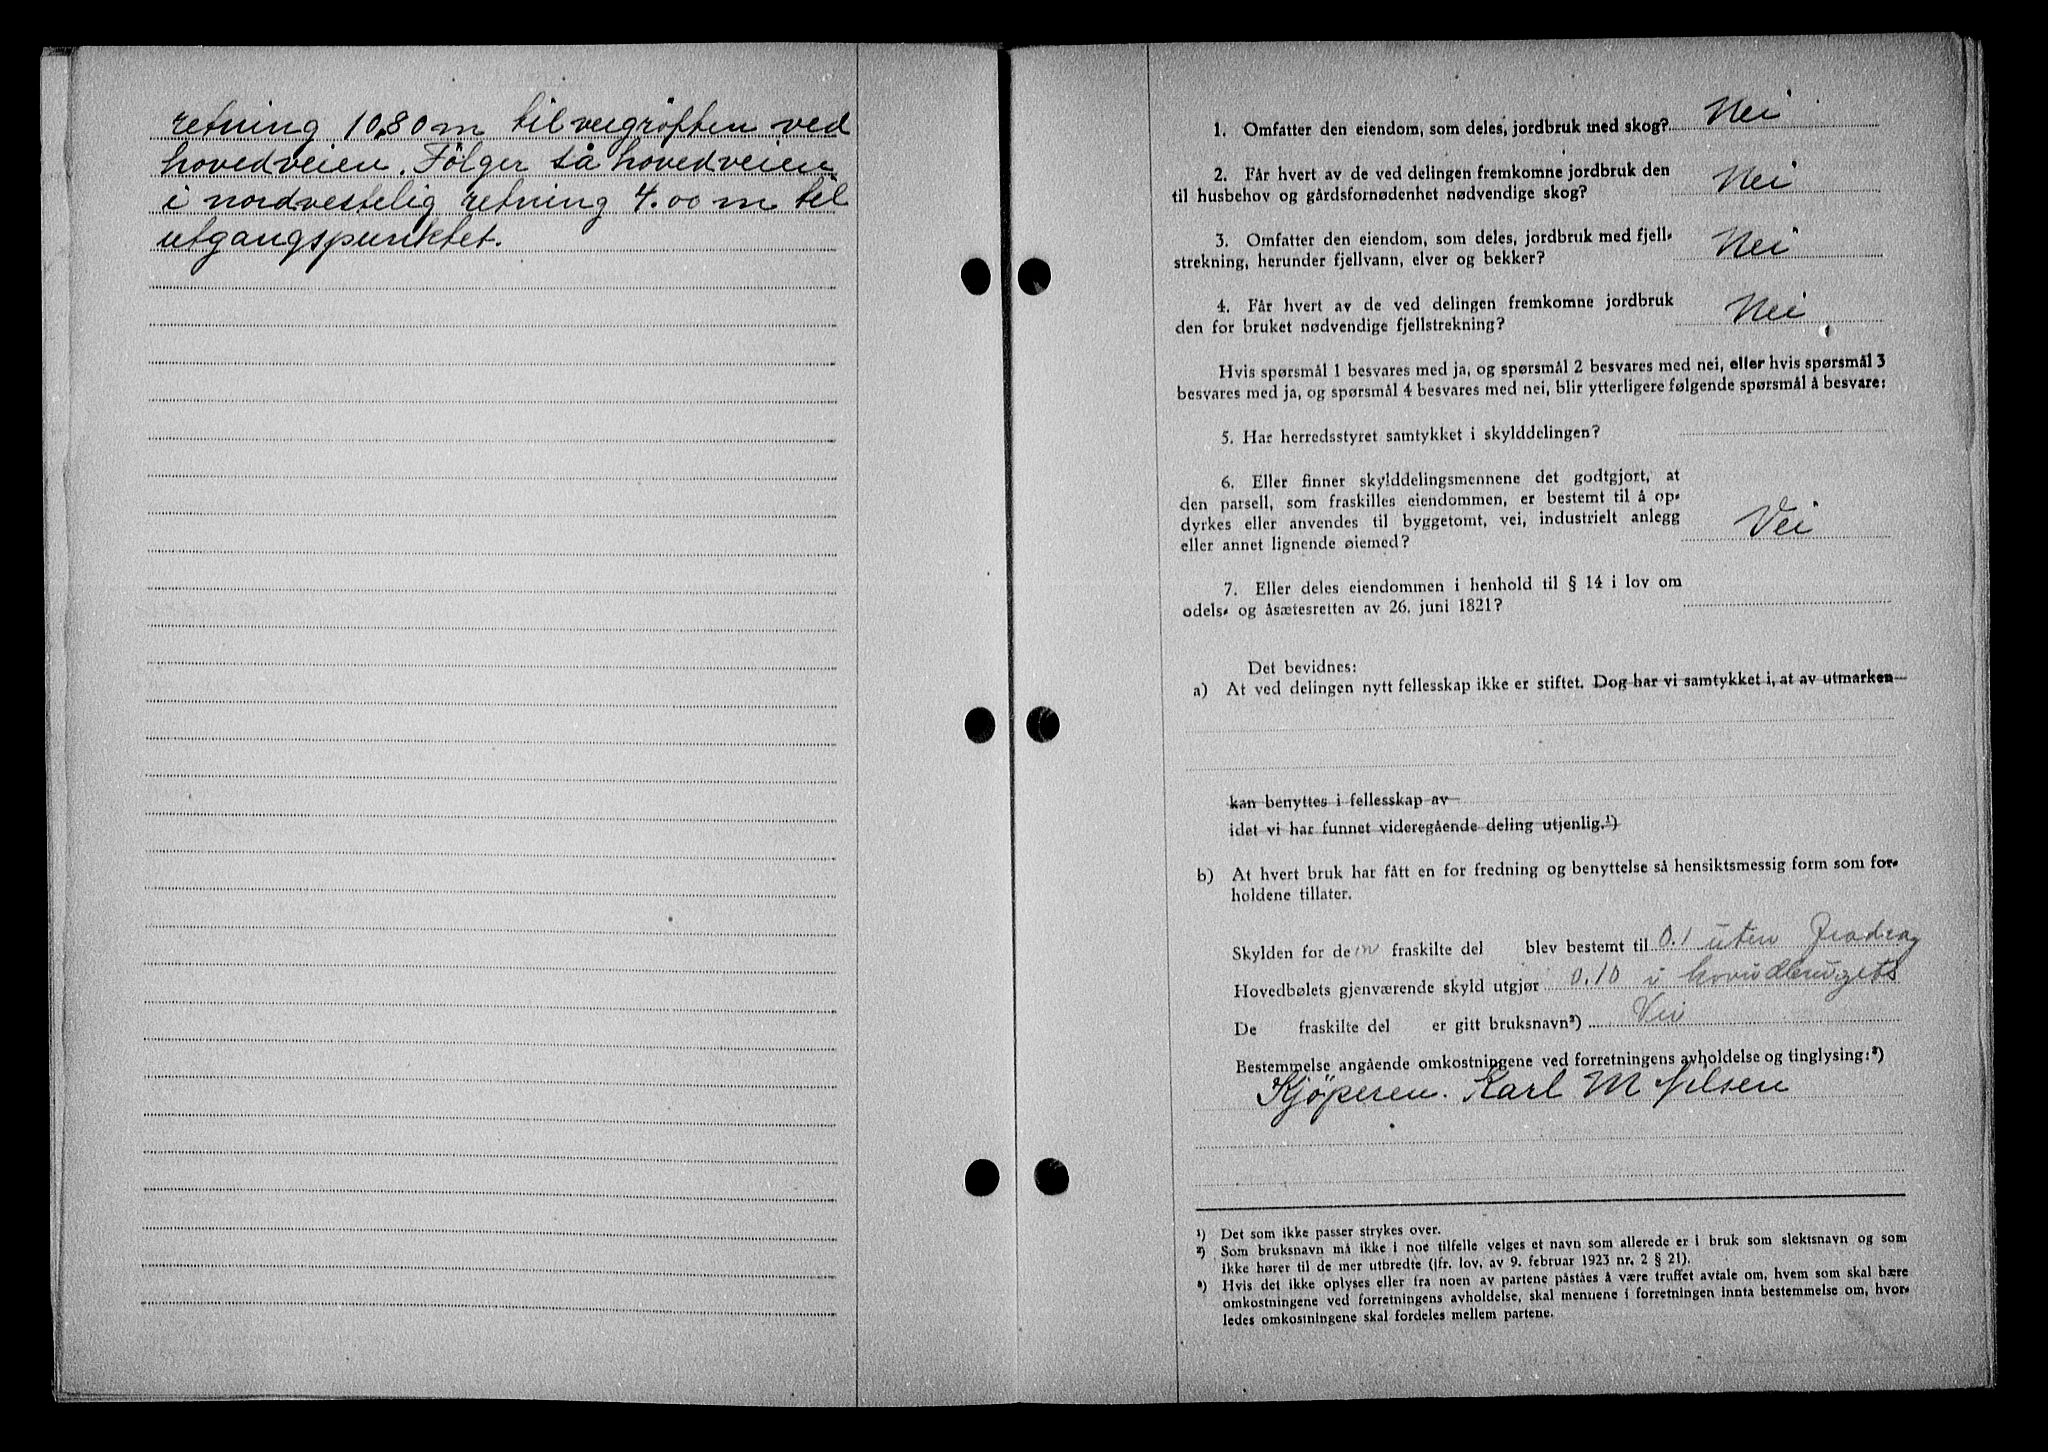 retning 10,80 m til veigrøften ved
hovedveien. Følger så hovedveien
i nordvestelig retning 4.00 m til
utgangspunktet.
1. Omfatter den eiendom, som deles, jordbruk med skog? Nei
2. Får hvert av de ved delingen fremkomne jordbruk den
til husbehov og gårdsfornødenhet nødvendige skog? Nei
3. Omfatter den eiendom, som deles, jordbruk med fjell-
strekning, herunder fjellvann, elver og bekker? Nei
4. Får hvert av de ved delingen fremkomne jordbruk
den for bruket nødvendige fjellstrekning? Nei
Hvis spørsmål 1 besvares med ja, og spørsmål 2 besvares med nei, eller hvis spørsmål 3
besvares med ja, og spørsmål 4 besvares med nei, blir ytterligere følgende spørsmål å besvare:
5. Har herredsstyret samtykket i skylddelingen?
6. Eller finner skylddelingsmennene det godtgjort, at
den parsell, som fraskilles eiendommen, er bestemt til å op-
dyrkes eller anvendes til byggetomt, vei, industrielt anlegg
eller annet lignende øiemed? Vei
7. Eller deles eiendommen i henhold til § 14 i lov om
odels- og åsætesretten av 26. juni 1821?
Det bevidnes:
a) At ved delingen nytt fellesskap ikke er stiftet. Dog har vi samtykket i, at av utmarken
kan benyttes i fellesskap av
idet vi har funnet videregående deling utjenlig.¹)
b) At hvert bruk har fått en for fredning og benyttelse så hensiktsmessig form som for-
holdene tillater.
Skylden for den fraskilte del blev bestemt til 0.1 uten fradrag
Hovedbølets gjenværende skyld utgjør 0.10 i hovudbrugets
De fraskilte del er gitt bruksnavn²) Vei
Bestemmelse angående omkostningene ved forretningens avholdelse og tinglysing:³)
Kjøperen. Karl M Nilsen
¹) Det som ikke passer strykes over.
²) Som bruksnavn må ikke i noe tilfelle velges et navn som allerede er i bruk som slektsnavn og som
ikke hører til de mer utbredte (jfr. lov. av 9. februar 1923 nr. 2 § 21).
³) Hvis det ikke oplyses eller fra noen av partene påståes å være truffet avtale om, hvem som skal bære
omkostningene ved forretningens avholdelse, skal mennene i forretningen innta bestemmelse om, hvor-
ledes omkostningene skal fordeles mellem partene.